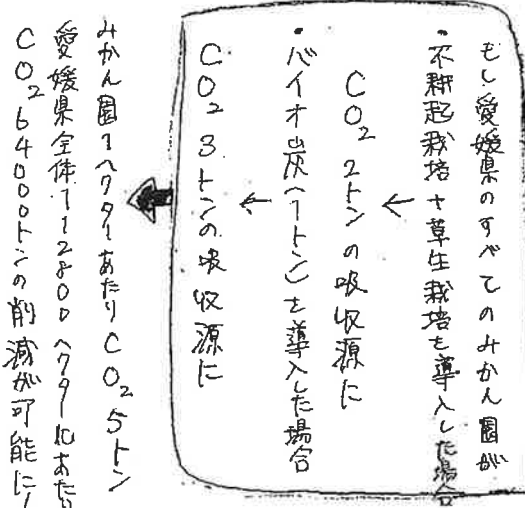 もし愛媛県のすべてのみかん園が
・不耕起栽培＋草生栽培を導入した場合
←
CO2 2トンの吸収源に
・バイオ炭（1トン）を導入した場合
←
CO2 3トンの吸収源に
みかん園1ヘクターあたりCO2 5トン
愛媛県全体112800ヘクターにあたり
CO2 64000トンの削減が可能に！